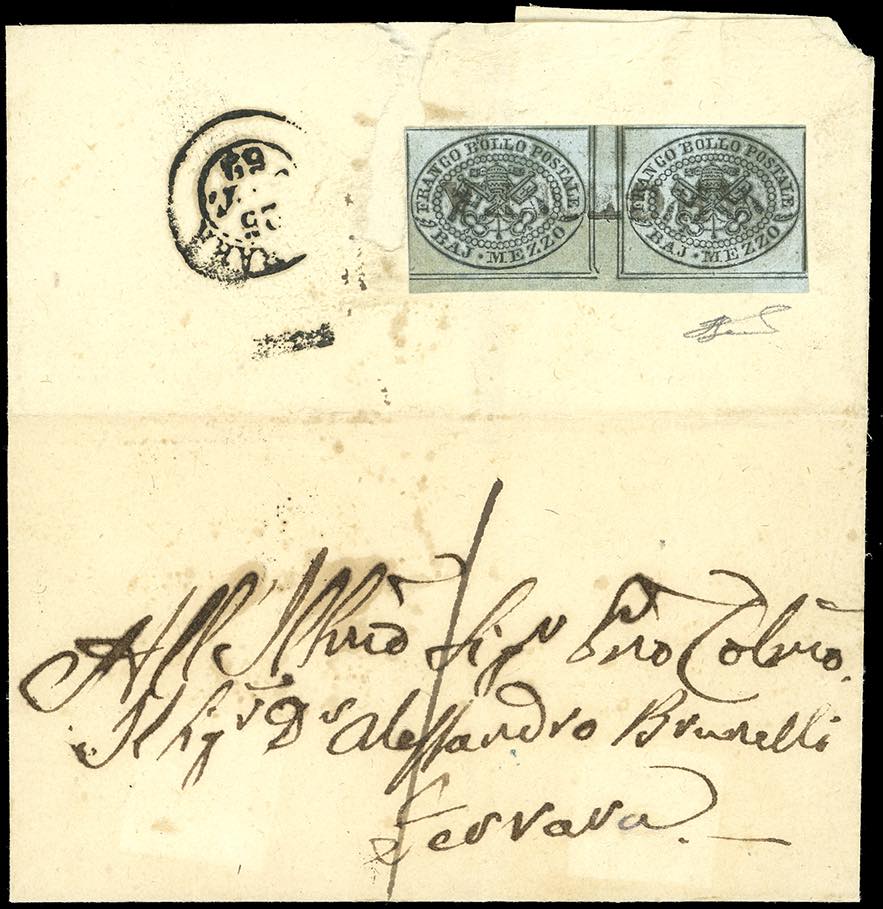 FRANCO BOLLO POSTALE
BAJ. MEZZO
FRANCO BOLLO POSTALE
BAJ. MEZZO
All' Illmo Sigr Pno Colmo.
Il Sigr Dr Alessandro Brunelli
Ferrara.